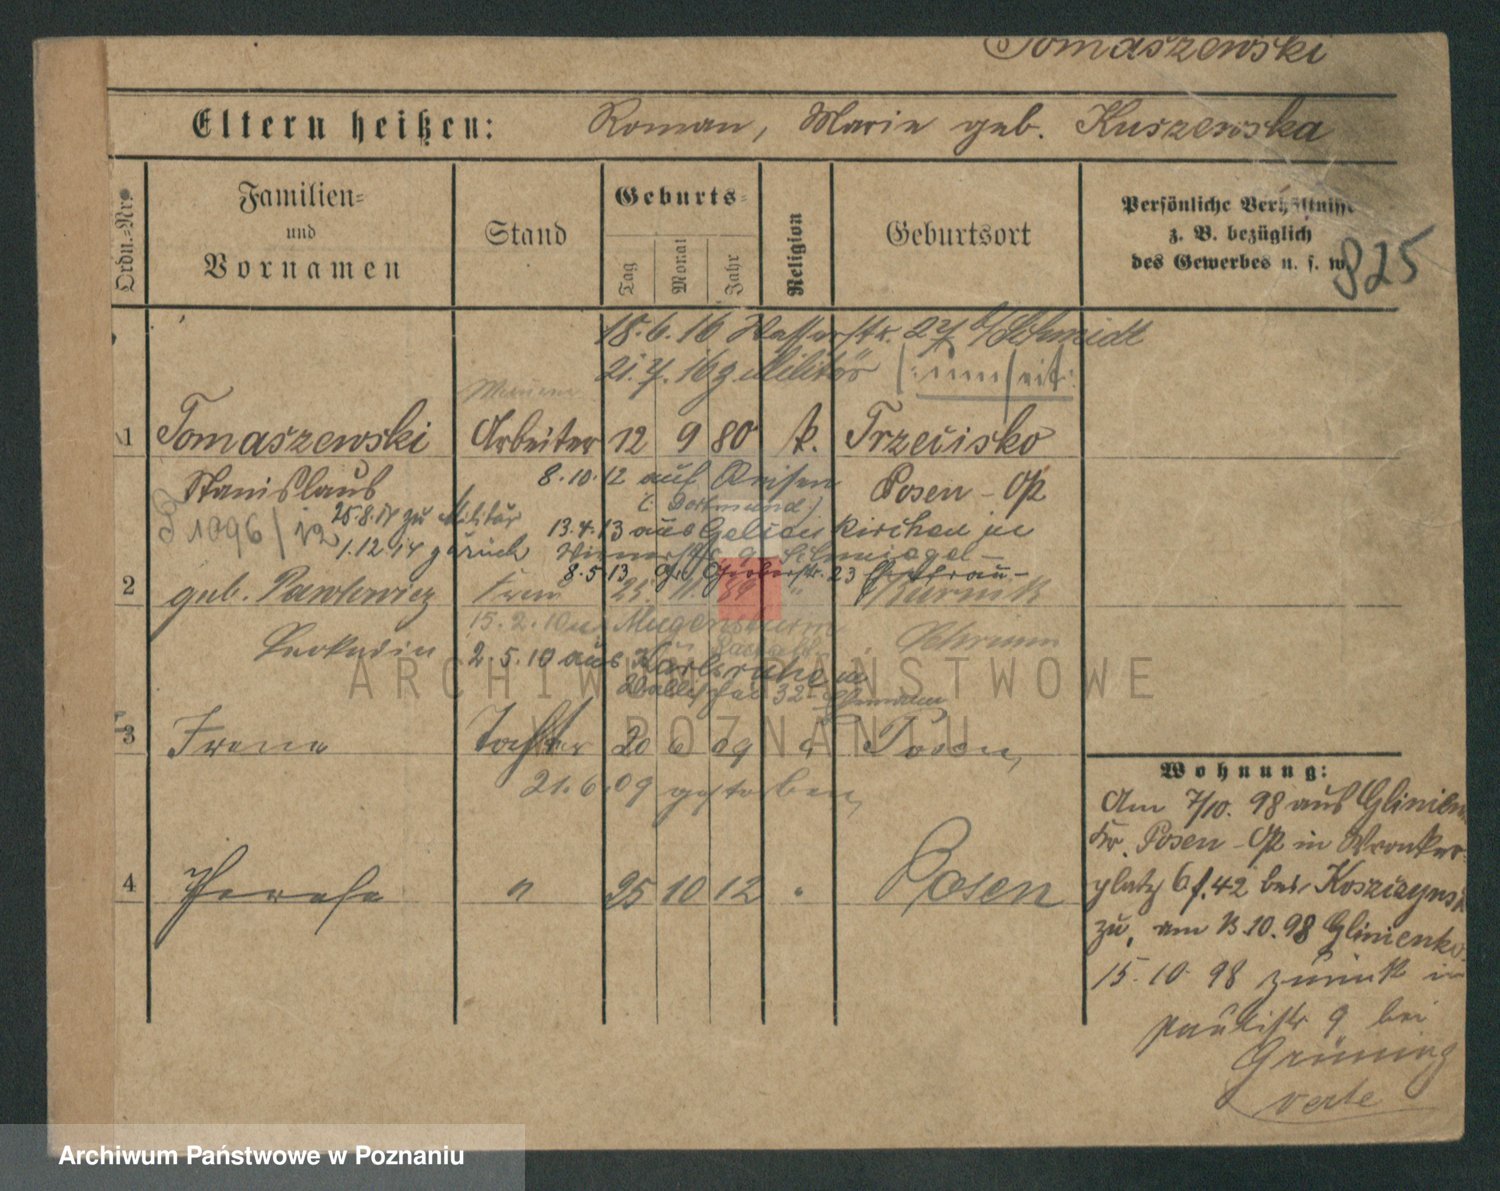 Tomaszewski
Eltern heißen: Roman, Marie geb. Kuszewska
Ordn.-Nr.
Familien-
und
Vornamen
Stand
Geburts-
Tag
Monat
Jahr
Religion
Geburtsort
Persönliche Verhältnisse
z. B. bezüglich
des Gewerbes u. s. w.
825
18.6.16 Wasserstr. 27 b/Schmidt
21.7.16 z Militär
1 Tomaszewski Arbeiter 12 9 80 k. Trzcisko
Stanislaus 8.10.12 auf Reisen Posen-Ost
(Dortmund)
1096/12 25.8.14 zu Militär 13.4.13 aus Gelsenkirchen in
1.12.14 zurück
8.5.13 Gr. Gerberstr. 23
2 geb. Pawlowicz Frau 23. 11. 89 " Kurnik
15.2.10 n. Muggensturm Schrimm
Leokadia 2.5.10 aus Karlsruhe in
Wallischei 32
3 Irene Tochter 20 6 09 " Posen,
21.6.09 gestorben,
4 Therese " 25 10 12 " Posen
Wohnung:
Am 7/10. 98 aus Glinienko
Kr. Posen-Ost in Wronker
platz 6 f. 42 bei
zu, am 13.10.98 Glinienko
15.10.98 zurück in
Paulistr 9 bei
Grüning
verte
ARCHIWUM PAŃSTWOWE
W POZNANIU
Archiwum Państwowe w Poznaniu